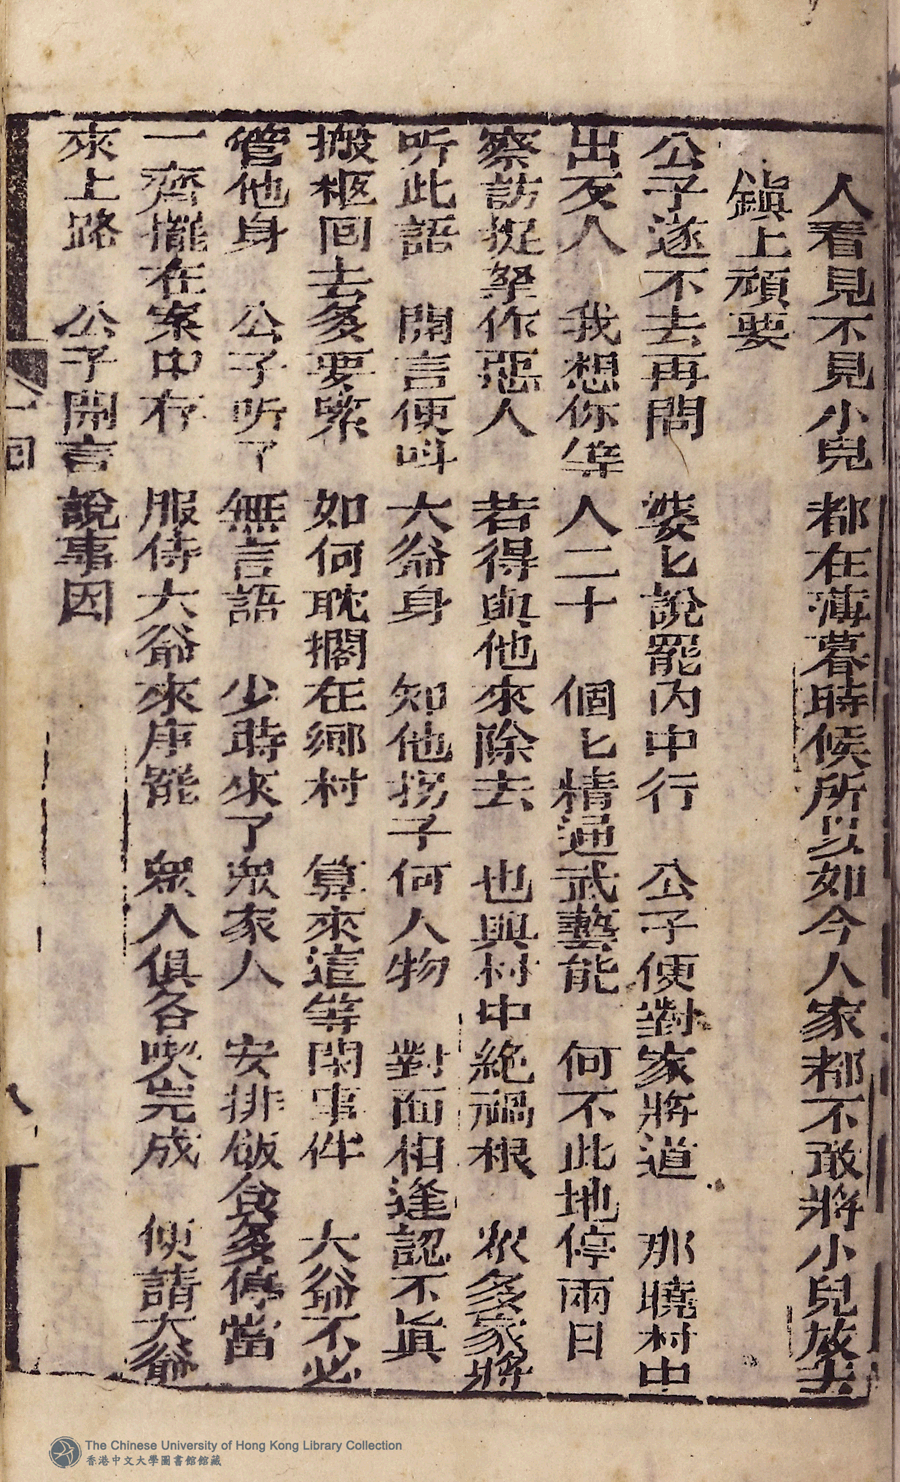 人看見不見小兒都在薄暮時候所以如今人家都不敢將小兒放去
鎮上頑耍
公子遂不去再問 婆匕說罷內中行 公子便對家將道 那曉村中
出歹人 我想你等人二十 個匕精通武藝能 何不此地停兩日
察訪捉拏作惡人 若得與他來除去 也與村中絶禍根 衆多家將
听此語 開言便呌大爺身 知他拐子何人物 對面相逢認不眞
搬柩回去多要緊 如何耽擱在鄉村 算來這等閑事件 大爺不必
管他身 公子听了無言語 少時來了衆家人 安排飯食多停當
一齊擺在案中存 服侍大爺來用罷 衆人俱各喫完成 便請大爺
來上路 公子開言說事因
一回
八
The Chinese University of Hong Kong Library Collection
香港中文大學圖書館館藏